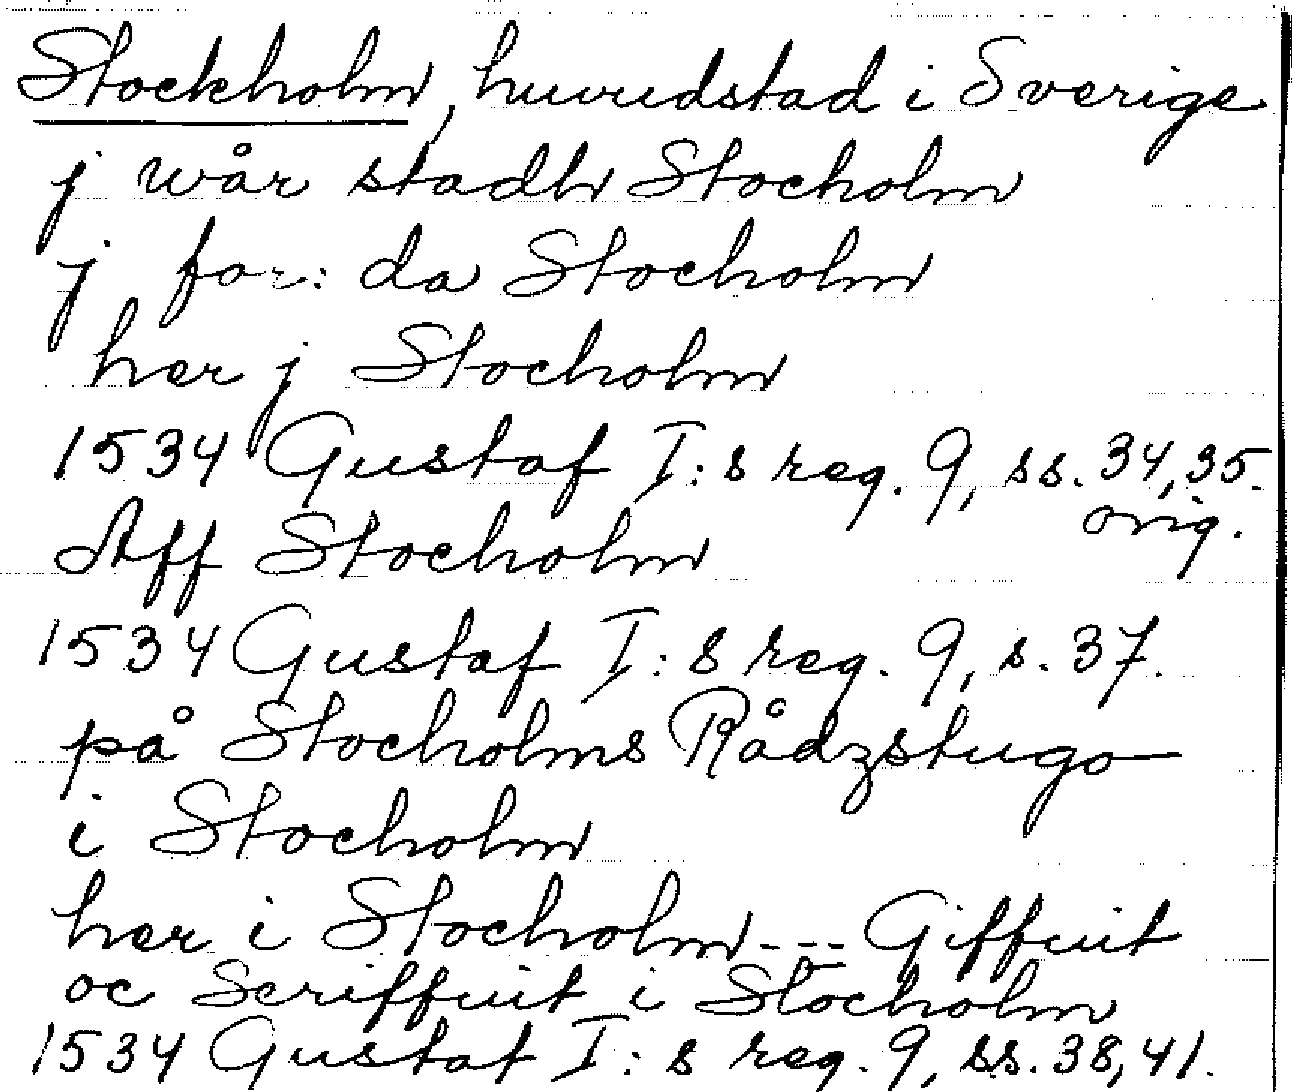 Stockholm, huvudstad i Sverige
j wår stadh Stocholm
j for: da Stocholm
her j Stocholm
1534 Gustaf I:s reg. 9, ss. 34, 35.
orig.
Aff Stocholm
1534 Gustaf I:s reg. 9, s. 37.
på Stocholms Rådzstugo
i Stocholm
her i Stocholm --- Giffuit
oc Scriffuit i Stocholm
1534 Gustaf I:s reg. 9, ss. 38, 41.